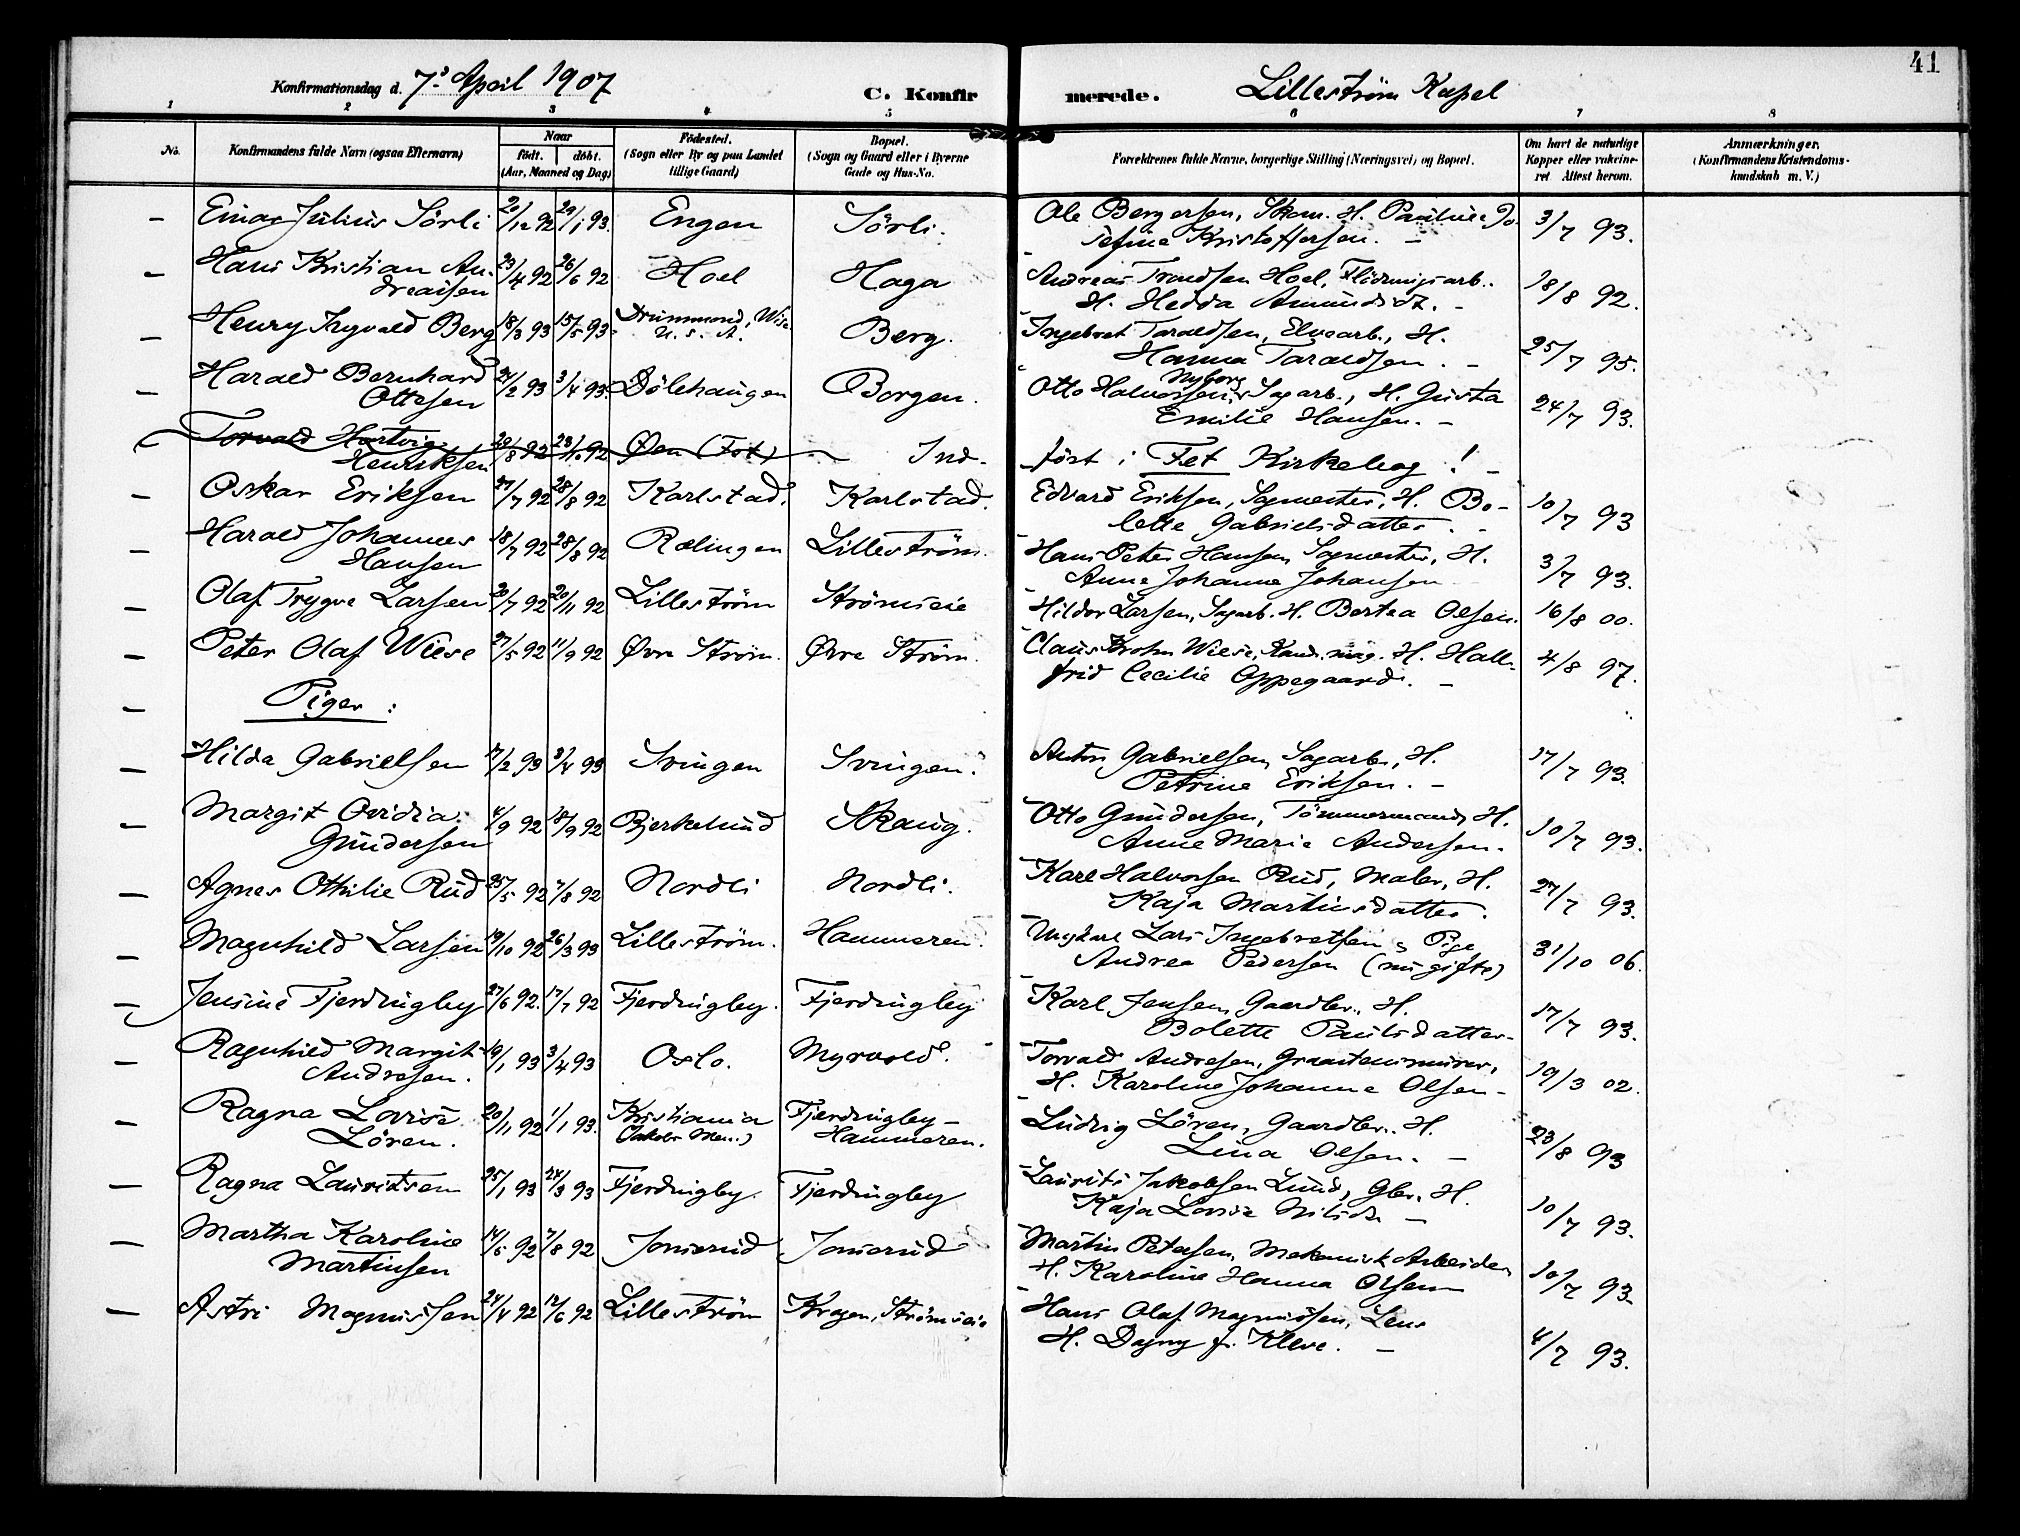 41
Konfirmationsdag d. 7de April 1907
C. Konfirmerede. Lillestrøm Kapel
1 2 3 4 5 6 7 8
No. Konfirmandens fulde Navn (ogsaa Efternavn) Naar født. døbt. (Aar, Maaned og Dag) Fødested. (Sogn eller By og paa Landet tillige Gaard) Bopæl. (Sogn og Gaard eller i Byerne Gade og Hus-No. Forældrenes fulde Navne, borgerlige Stilling (Næringsvei) og Bopæl. Om havt de naturlige Kopper eller vakcineret. Attest herom. Anmærkninger. (Konfirmandens Kristendomskundskab m. V.)
— Einar Julius Sörli 20/12 92 29/1 93. Engen Sörli. Ole Bergersen, Skom. H. Pauline Jo- 3/7 93.
sefine Kristoffersen. —
— Hans Kristian An- 23/4 92 26/6 92 Hoel Haga Andreas Trondsen Hoel, Flödningsarb. 18/8 92.
dreasen H. Hedda Amundsdt. -
— Henry Ingvald Berg 18/3 93 15/5 93 Drummond, Wisc. U. S. A. Berg. Ingebret Taraldsen, Elvearb., H. 25/7 95.
Hanna Taraldsen. -
— Harald Bernhard 24/2 93 3/4 93. Dölehaugen Borgen. Otto Halvorsen Nyborg, Sagarb., H. Gusta 24/7 93.
Ottesen Emilie Hansen. -
Torvald Hartvig 29/8 92 23/10 92 Øen (Fet) Ind-
Henriksen fört i Fet Kirkebog! -
— Oskar Eriksen 27/7 92 28/8 92 Karlstad. Karlstad. Edvard Eriksen, Sagmester, H. Bo- 10/7 93
lette Gabrielsdatter. -
— Harald Johannes 18/7 92 28/8 92 Rælingen Lilleström. Hans Peter Hansen, Sagmester, H. 3/7 93.
Hansen Anne Johanne Johansen
— Olaf Trygve Larsen 20/7 92 20/11 92 Lilleström Strömseie Hildor Larsen, Sagarb. H. Bertea Olsen. 16/8 00.
— Peter Olaf Wiese 27/5 92 11/9 92 Øvre Ström. Øvre Ström. Claus Krohn Wiese, Kand. mag. H. Hall- 4/8 97.
frid Cecilie Oppegaard. -
— Piger:
— Hilda Gabrielsen 17/2 93 3/4 93 Svingen Svingen. Anton Gabrielsen, Sagarb., H. 17/7 93.
Petrine Eriksen. -
— Margit Ovidia 4/9 92 18/9 92 Bjerkelund Skaug. Otto Gundersen, Tömmermand, H. 10/7 93.
Gundersen Anne Marie Andersen.
— Agnes Othilie Rud 25/5 92 7/8 92 Nordli Nordli. Karl Halvorsen Rud, Maler, H. 27/7 93.
Kaja Martinsdatter.
— Magnhild Larsen 19/10 92 26/3 93 Lilleström. Hammeren. Ungkarl Lars Ingebretsen & Pige 31/10 06.
Andrea Pedersen (nu gifte)
— Jensine Fjerdingby 27/6 92. 17/7 92 Fjerdingby. Fjerdingby Karl Jensen, Gaardbr., H. 17/7 93.
Bolette Paulsdatter-
— Ragnhild Margit 19/1 93 3/4 93 Oslo. Myrvold. Torvald Andresen, Graastensmurer, 19/3 02.
Andresen. H. Karoline Johanne Olsen -
— Ragna Lovise 20/11 92 1/1 93. Kristiania Fjerdingby- Ludvig Lören, Gaardbr. H. 23/8 93
Lören. (Jakobs Men.) Hammeren. Lina Olsen. -
— Ragna Lauritsen 25/1 93 24/3 93 Fjerdingby. Fjerdingby Laurits Jakobsen Lund, Gbr. H. 10/7 93.
Kaja Lovise Nilsdt. -
— Martha Karoline 14/5 92 7/8 92 Jonsrud Jonsrud Martin Petersen, Mekanisk Arbeider 10/7 93.
Martinsen H. Karoline Hanna Olsen
— Astri Magnussen 24/4 92 12/6 92 Lilleström Krogen, Strömseie Hans Olaf Magnussen, 4/7 93.
H. Dagny f. Kleve. -